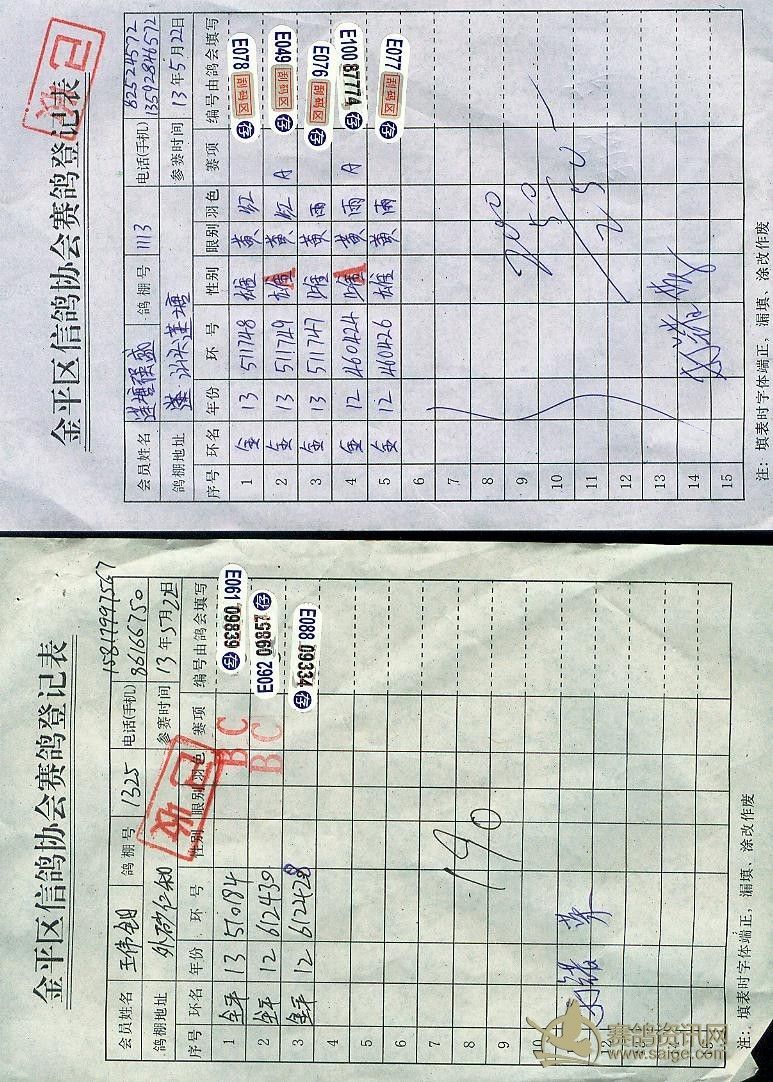 金平区信鸽协会赛鸽登记表
会员姓名 鸽棚号 1113 电话(手机) 82524572 13592846572
鸽棚地址 参赛时间 13年5月22日
序号 环名 年份 环号 性别 眼别 羽色 赛项 编号由鸽会填写
1 金 13 511748 雄 黄 红 E078
2 金 13 511749 雄 黄 红 A E049
3 金 13 511747 雌 黄 雨 E076
4 金 12 460424 雌 黄 雨 A E100 87774
5 金 12 460426 雄 黄 雨 E077
6
7
8
9
10
11
12
13
14
15
200
50
250
注：填表时字体端正，漏填、涂改作废
金平区信鸽协会赛鸽登记表
会员姓名 王伟钿 鸽棚号 1325 电话(手机) 15817997567 86166750
鸽棚地址 外砂仁和 参赛时间 13年5月22日
序号 环名 年份 环号 性别 眼别 羽色 赛项 编号由鸽会填写
1 金平 13 51084 B C E061 09839
2 金平 12 612439 B C E062 15860
3 金平 12 612428 E088 09334
4
5
6
7
8
9
10
190
注：填表时字体端正，漏填、涂改作废
赛鸽资讯网
www.saige.com